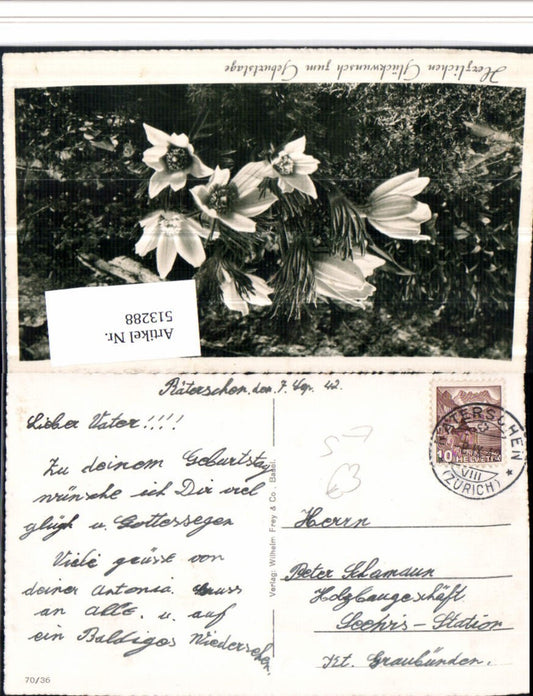 Herzlichen Glückwunsch zum Geburtstage
Artikel Nr.
513288
Räterschen, den 7. Sep. 42.
Lieber Vater!!!!
Zu deinem Geburtstag
wünsche ich Dir viel
glück u. Gottessegen
Viele grüsse von
deiner Antonia. Gruss
an alle. u. auf
ein Baldiges Wiedersehen.
70/36
Verlag: Wilhelm Frey & Co., Basel.
57
63
10
HELVETIA
RÄTERSCHEN
VIII
(ZÜRICH)
Herrn
Peter Schamaun
Holzbaugeschäft
Seewis-Station
Kt. Graubünden.